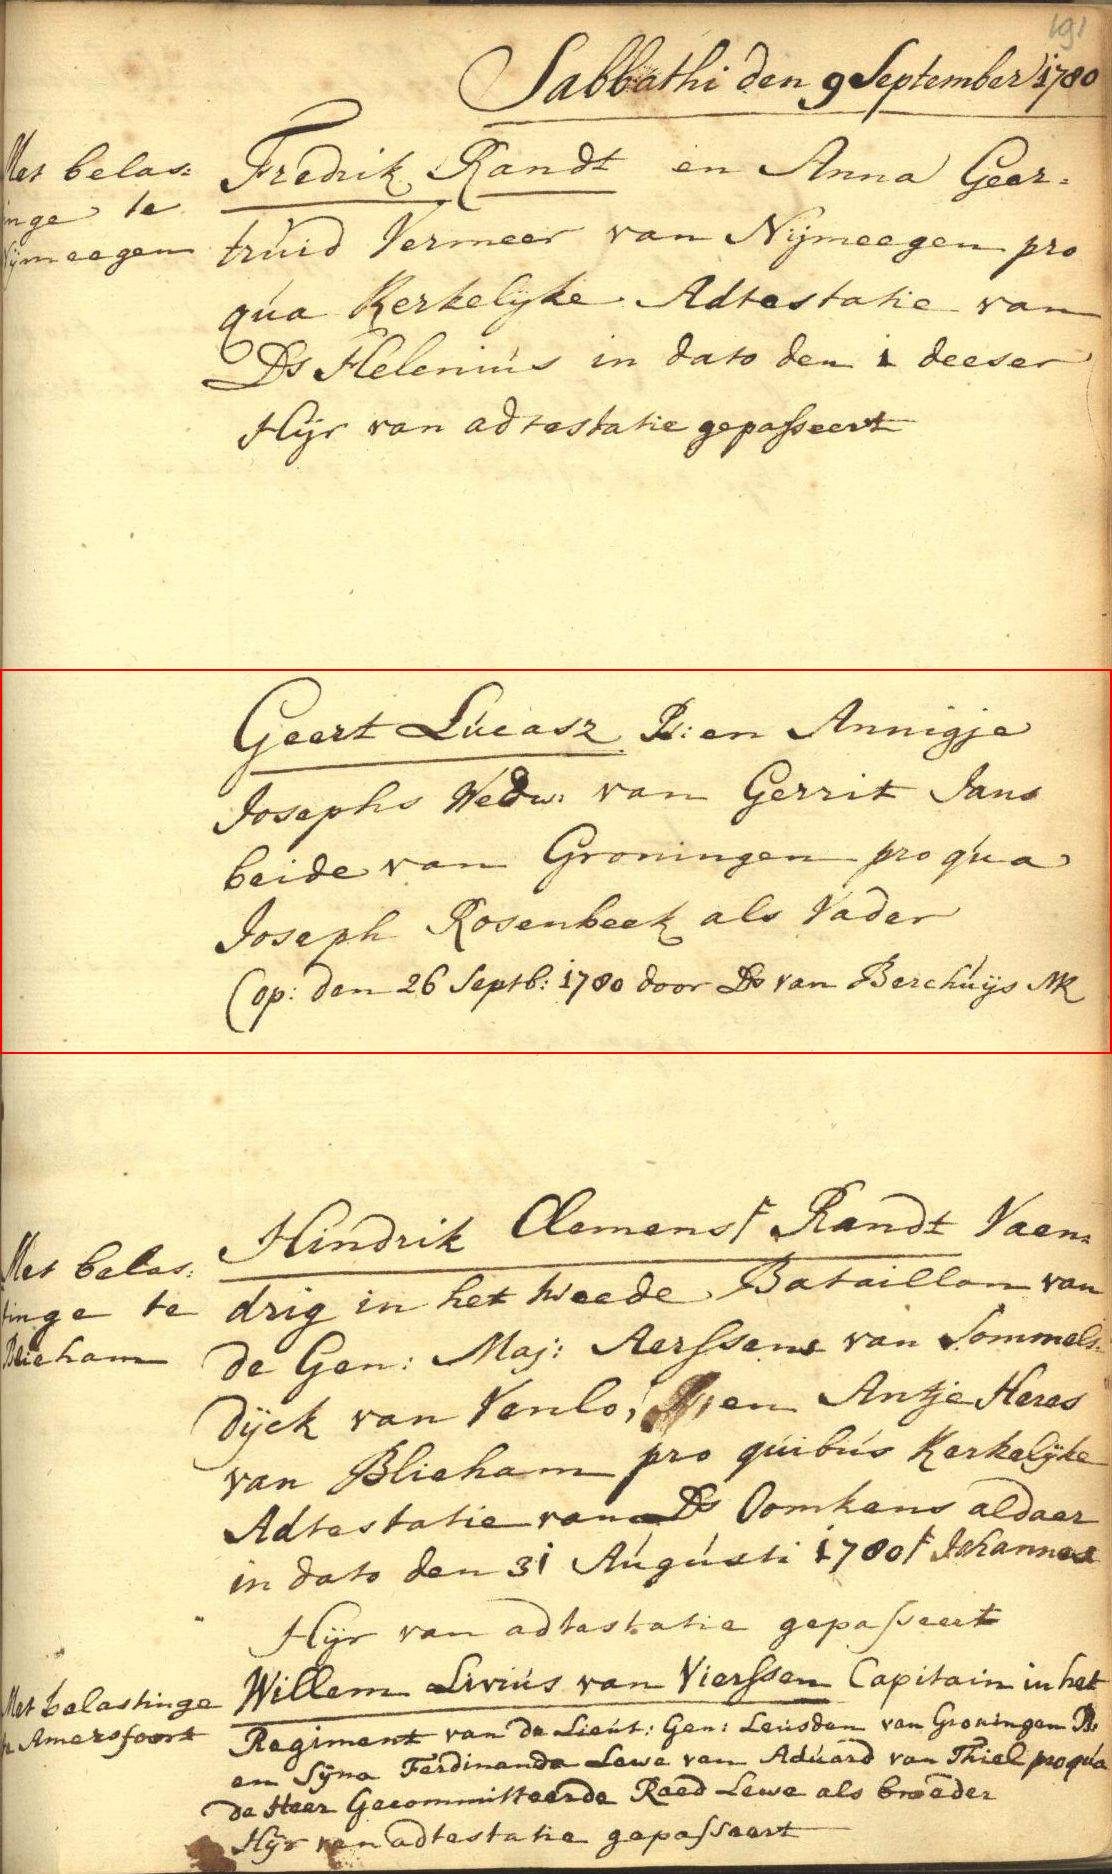 191
Sabbathi den 9 September 1780
Met belas:
inge te
Nijmeegen
Fredrik Randt en Anna Geer-
truid Vermeer van Nijmeegen pro
qua Kerkelijke Adtestatie van
Ds Helenius in dato den 1 deeser
Hijr van adtestatie gepasseert
Geert Lucasz B: en Annigje
Josephs Wedw: van Gerrit Jans
beide van Groningen pro qua
Joseph Rosenbeek als Vader
Cop: den 26 Septb: 1780 door Ds van Berchuijs MK
Met belas:
tinge te
Blieham
Hindrik Clemens Randt Vaen-
drig in het tweede Bataillon van
de Gen: Maj: Aerssens van Sommels-
dijck van Venlo, en Antje Heres
van Blieham pro quibus Kerkelijke
Adtestatie van Ds Oomkens aldaer
in dato den 31 Augusti 1780 Johannes
Hijr van adtestatie gepasseert
Met belastinge
te Amersfoort
Willem Livius van Vierssen Capitain in het
Regiment van de Lieut: Gen: Leusden van Groningen B:
en Syna Ferdinanda Lewe van Aduard van Thiel pro qua
de Heer Gecommitteerde Raed Lewe als broeder
Hijr van adtestatie gepasseert